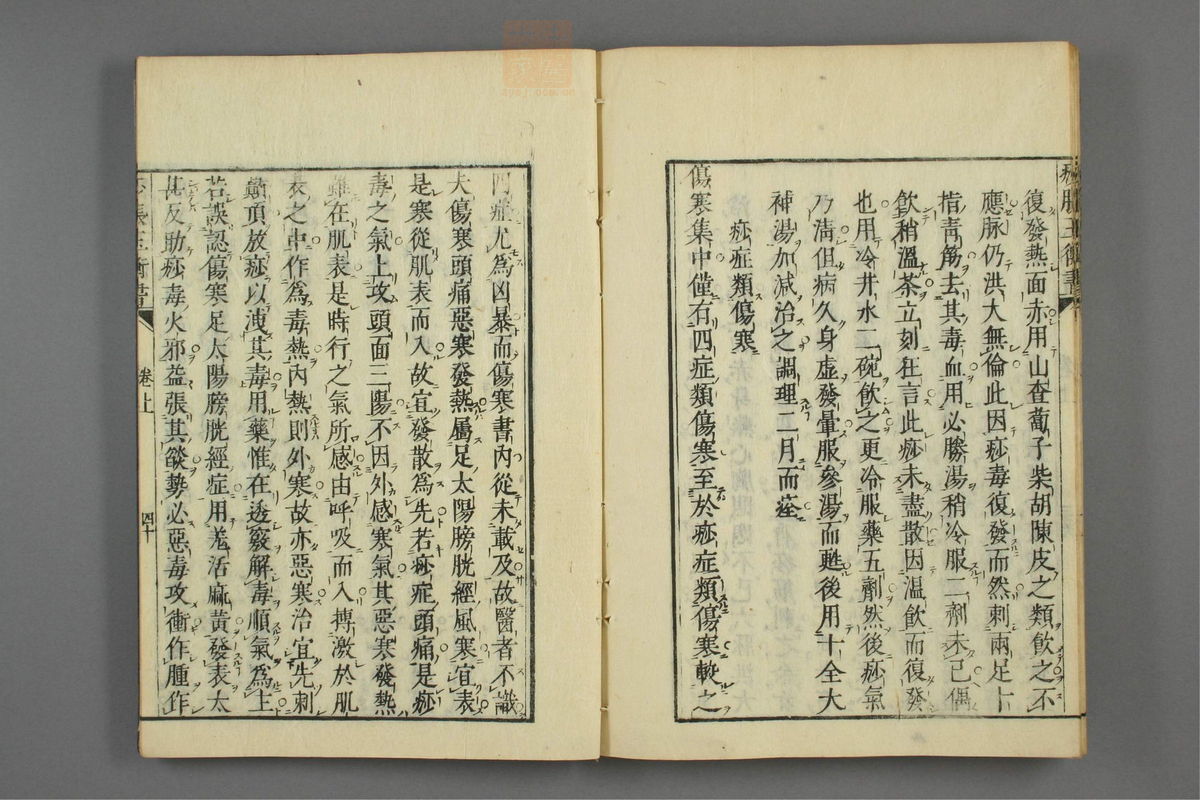 復發熱面赤用山查蔔子柴胡陳皮之類飲之不
應脉仍洪大無倫此因痧毒復發而然刺兩足十
指青筋去其毒血用必勝湯稍冷服二劑未已偶
飲稍溫茶立刻狂言此痧未盡散因温飲而復發
也用冷井水二碗飲之更冷服藥五劑然後痧氣
乃清但病久身虛發暈服參湯而甦後用十全大
補湯加減治之調理二月而痊
痧症類傷寒
傷寒集中僅有四症類傷寒至於痧症類傷寒較之
四症尤為凶暴而傷寒書內從未載及故醫者不識
夫傷寒頭痛惡寒發熱屬足太陽膀胱經風寒宜表
是寒從肌表而入故宜發散為先若痧症頭痛是痧
毒之氣上攻頭面三陽不因外感寒氣其惡寒發熱
雖在肌表是時行之氣所感由呼吸而入搏激於肌
表之中作為毒熱內熱則外寒故亦惡寒治宜先刺
巔頂放痧以洩其毒用藥惟在透竅解毒順氣為主
若誤認傷寒足太陽膀胱經症用羗活麻黃發表太
甚反助痧毒火邪益張其燄勢必惡毒攻衝作腫作
痧脹玉衡書
卷上
四十